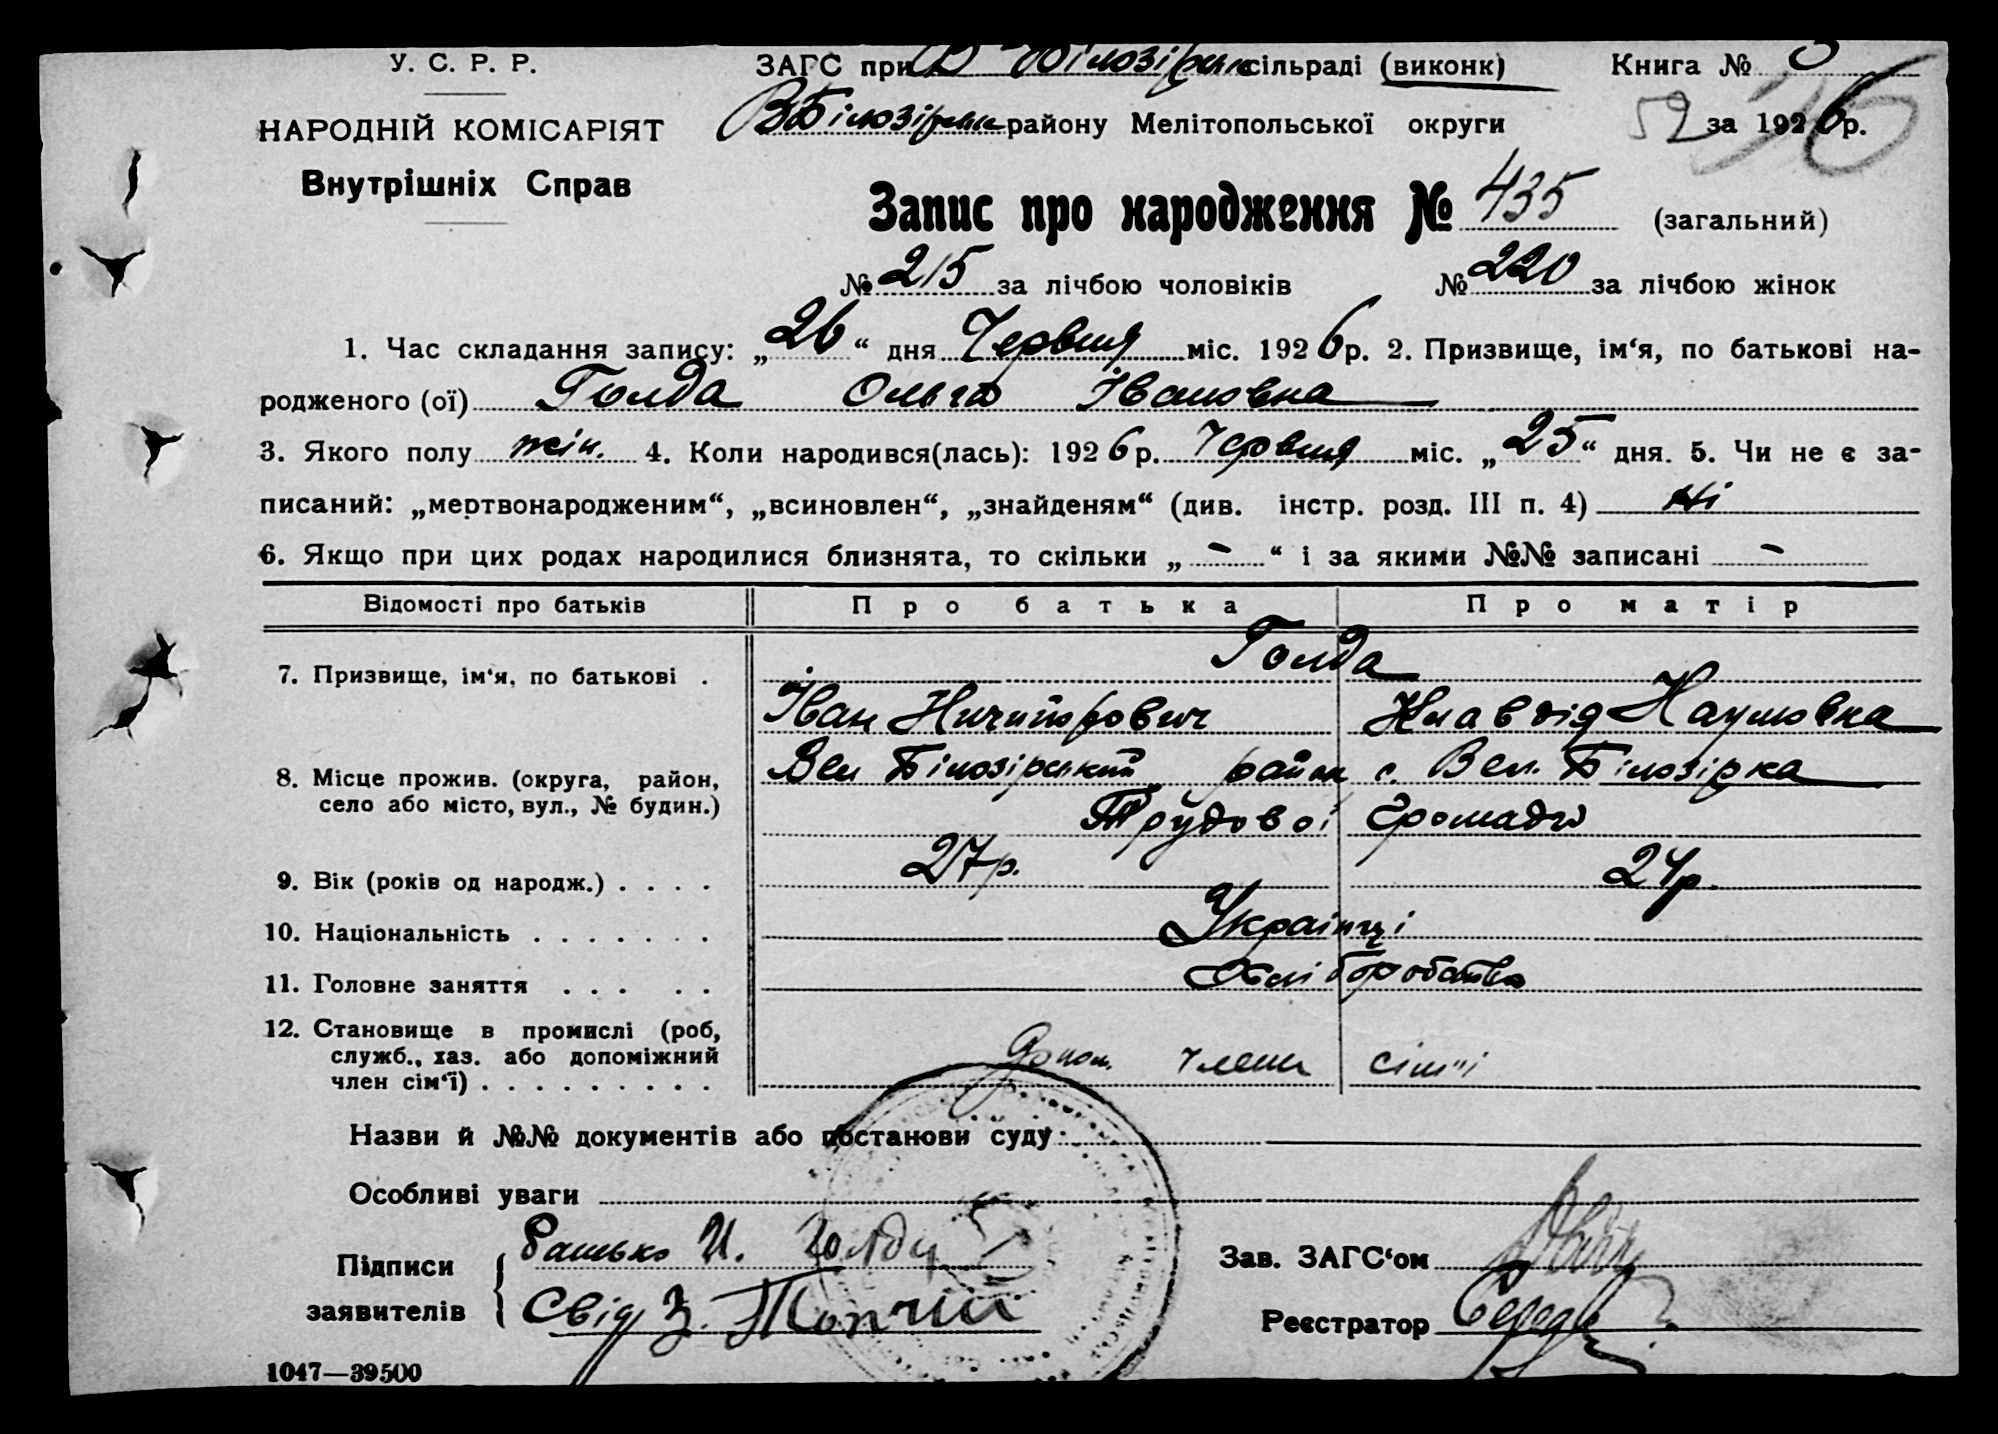 У. С. Р. Р.
НАРОДНІЙ КОМІСАРІЯТ
Внутрішніх Справ
ЗАГС при В Білозірськ сільраді (виконк)
В Білозірськ району Мелітопольської округи
Книга №
52 за 1926 р.
Запис про народження № 435 (загальний)
№ 215 за лічбою чоловіків № 220 за лічбою жінок
1. Час складання запису: „26“ дня Червня міс. 1926 р. 2. Призвище, ім‘я, по батькові на-
родженого (ої) Голда Ольга Івановна
3. Якого полу жін. 4. Коли народився(лась): 1926 р. Червня міс. „25“ дня. 5. Чи не є за-
писаний: „мертвонародженим“, „всиновлен“, „знайденям“ (див. інстр. розд. III п. 4) Ні
6. Якщо при цих родах народилися близнята, то скільки „ - “ і за якими №№ записані -
Відомості про батьків Про батька Про матір
7. Призвище, ім‘я, по батькові . Голда
Іван Ничипорович Клавдія Наумовна
8. Місце прожив. (округа, район,
село або місто, вул., № будин.)
Вел Білозірський район с. Вел. Білозірка
Трудової Громади
9. Вік (років од народж.) . . . . 27 р. 24 р.
10. Національність . . . . . . . Українці
11. Головне заняття . . . . . Хліборобство
12. Становище в промислі (роб,
служб., хаз. або допоміжний
член сім‘ї) . . . . . . . . . Допом. члени сім'ї
Назви й №№ документів або постанови суду
Особливі уваги
Підписи
заявителів
Батько И. Голда
Свід З. Топчий
Зав. ЗАГС‘ом
Реєстратор
1047—39500